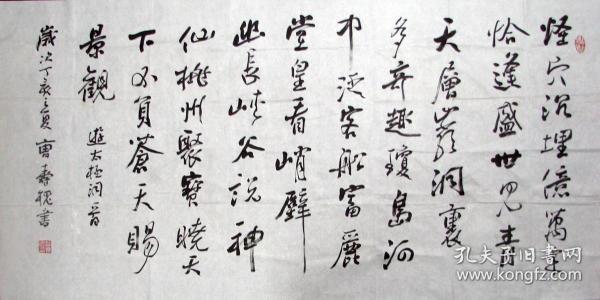 怪穴沉埋億萬年
恰逢盛世見青
天層巖洞裏
多奇趣瓊島河
中客船富麗
堂皇看峭壁
幽長峽谷說神
仙桃州聚寶曉天
下不負蒼天賜
景觀 遊太極洞
歲次丁亥之夏 曹壽書
孔夫子旧书网
www.kongfz.com